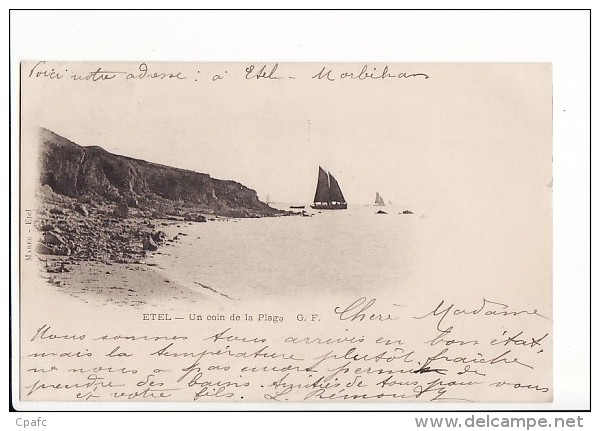 Voici notre adresse : à Etel - Morbihan
MAREE - Etel
ETEL — Un coin de la Plage G. F.
Chère Madame
Nous sommes tous arrivés en bon état
mais la température plutôt fraîche
ne nous a pas encore permis de
prendre des bains. Amitiés de tous pour vous
et votre fils. L. Rémondy
Cpafc
www.delcampe.net